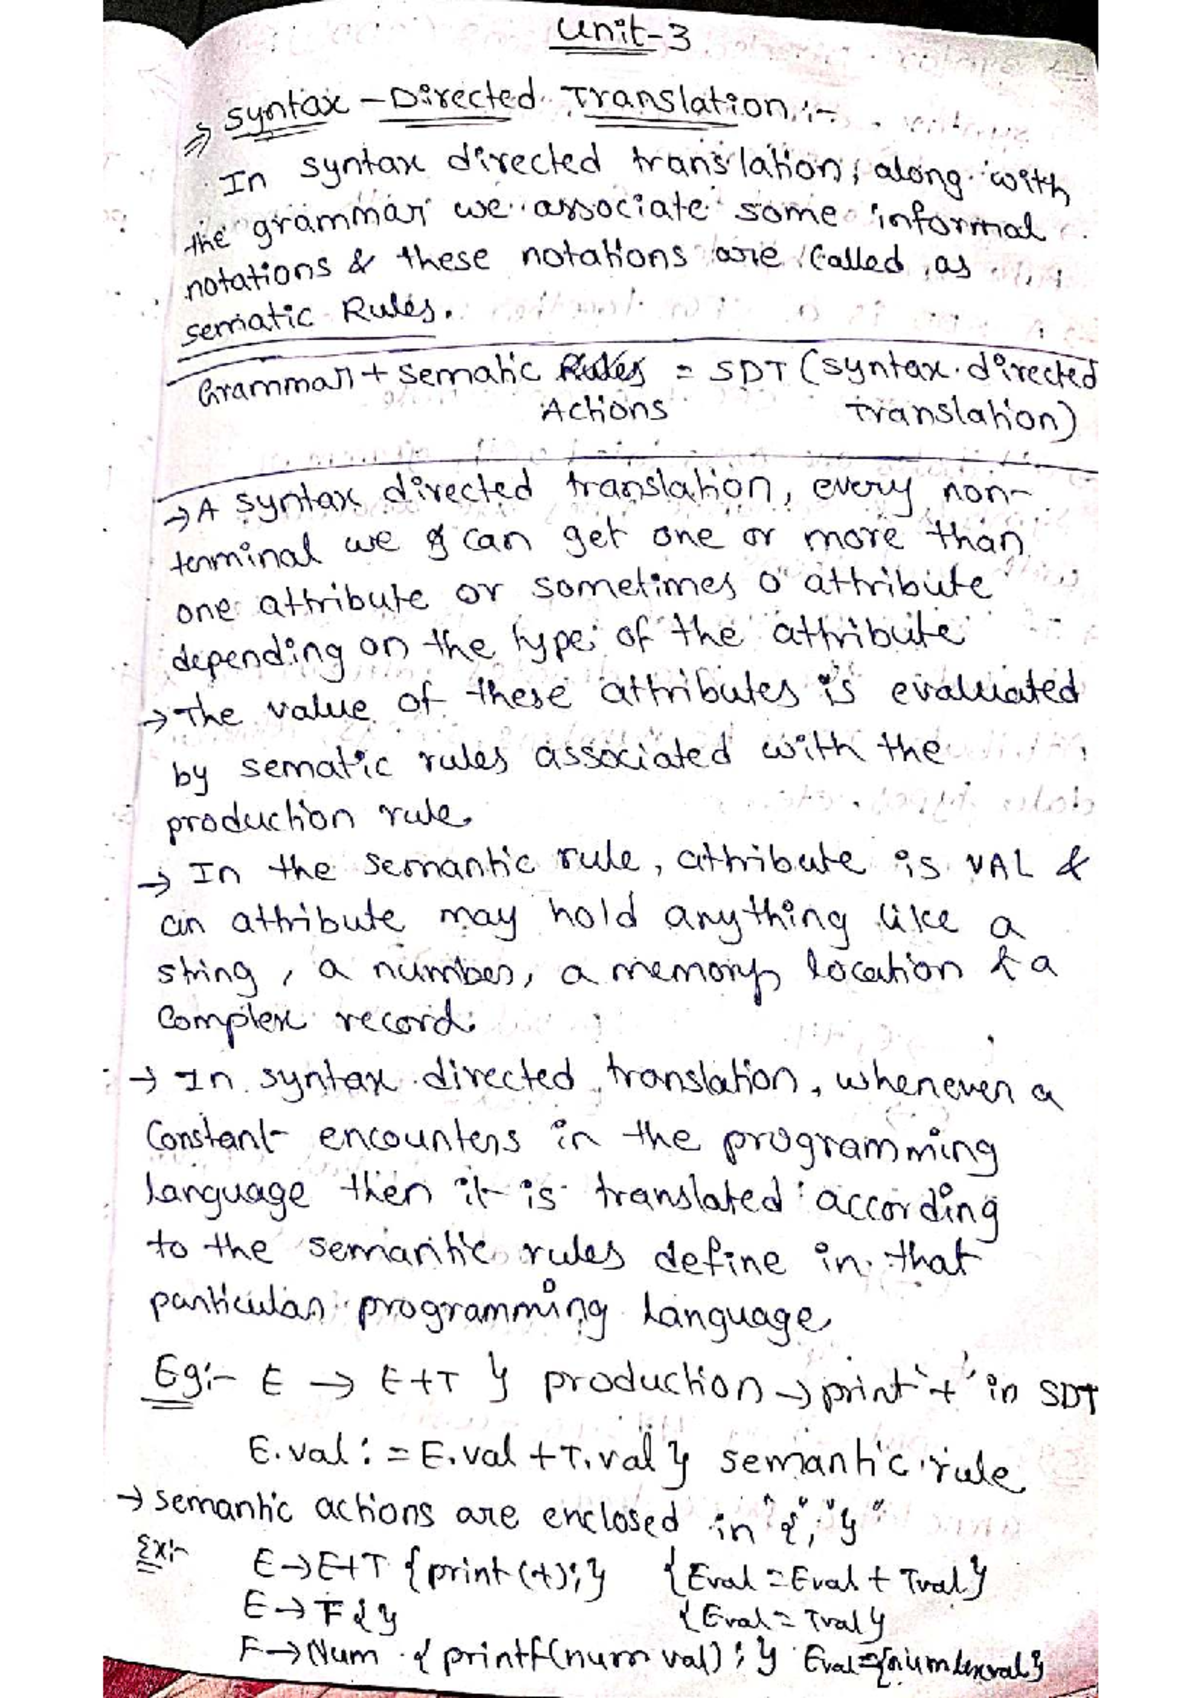 Unit-3
⇒ Syntax - Directed Translation :-
In syntax directed translation, along with
the grammar we associate some informal
notations & these notations are called as
sematic Rules.
Grammar + Sematic Rules = SDT (Syntax directed
Actions Translation)
→ A syntax directed translation, every non-
terminal we can get one or more than
one attribute or sometimes 0 attribute
depending on the type of the attribute
→ The value of these attributes is evaluated
by sematic rules associated with the
production rule.
→ In the semantic rule, attribute is VAL &
an attribute may hold anything like a
string, a number, a memory location & a
Complex record.
→ In syntax directed translation, whenever a
Constant encounters in the programming
language then it is translated according
to the semantic rules define in that
particular programming language.
Eg:- E → E+T } production → print '+' in SDT
E.val := E.val + T.val } semantic rule
→ semantic actions are enclosed in "{", "}"
Ex:- E → E+T {print(+);} {Eval = Eval + Tval}
E → T { } {Eval = Tval}
F → Num { printf(num val); } Eval = {num lexval}